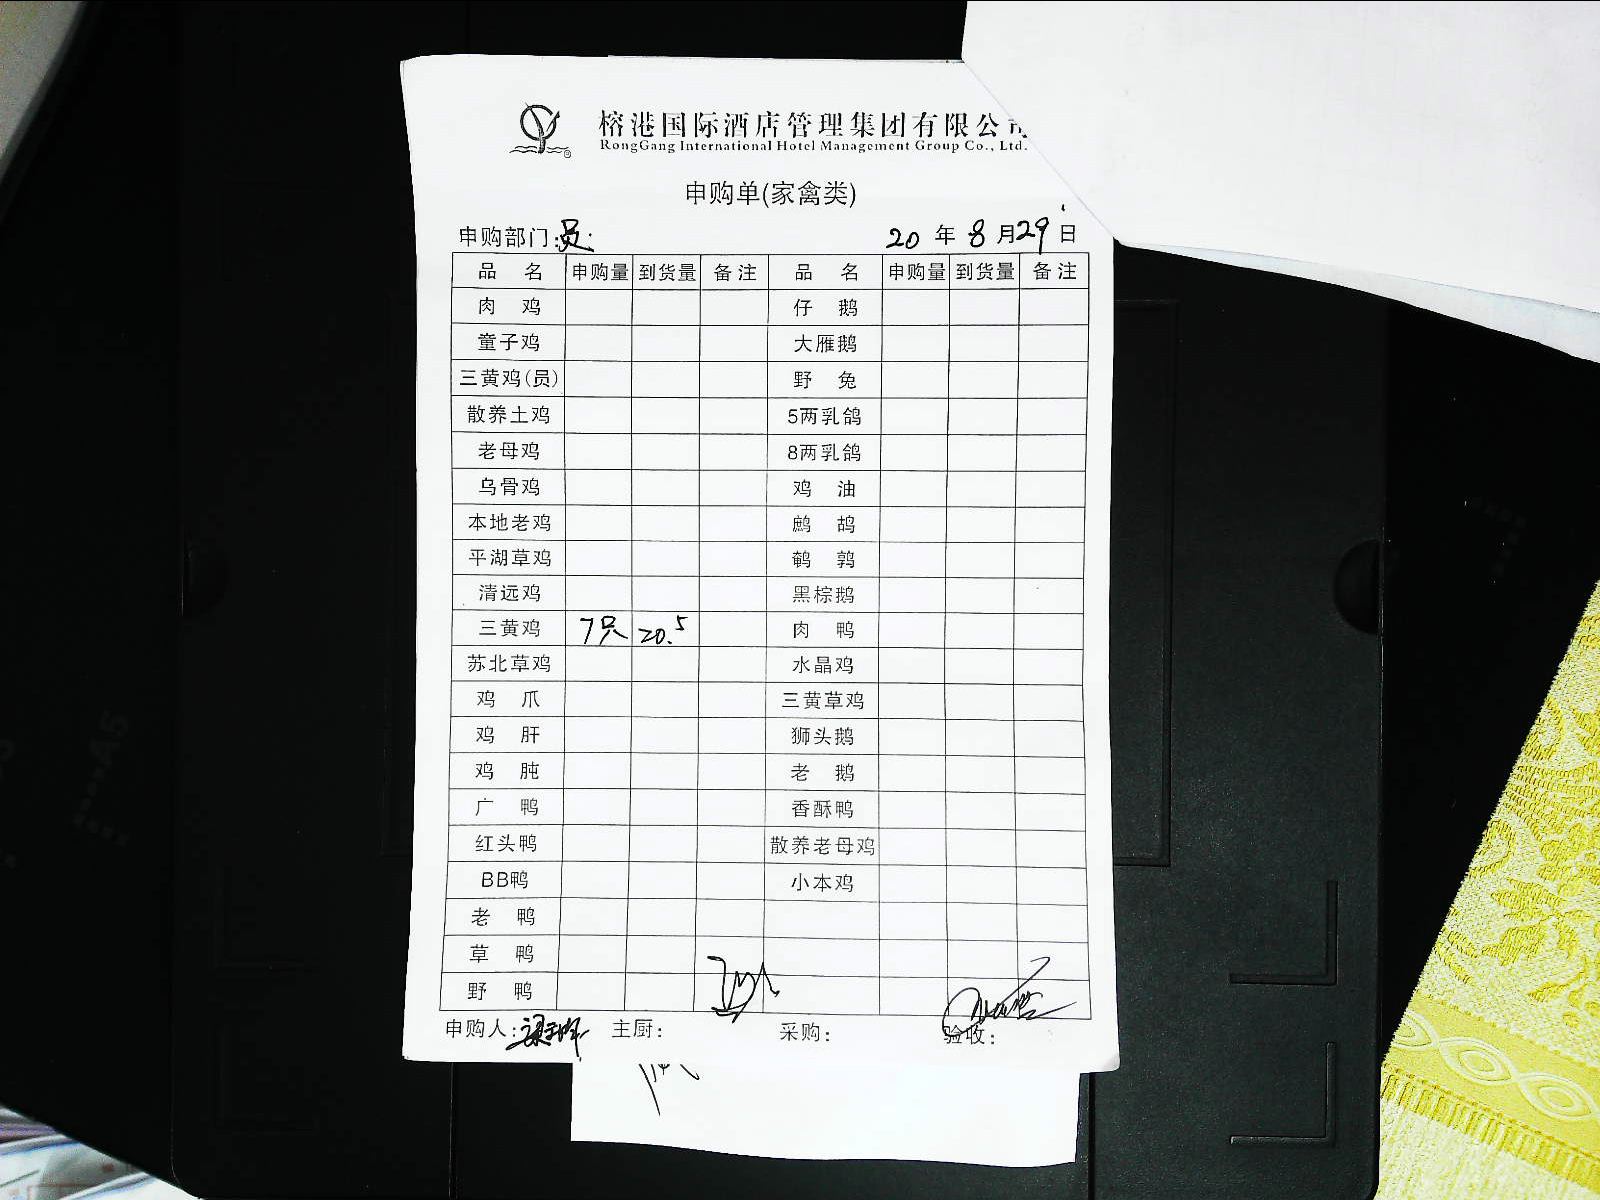 榕港国际酒店管理集团有限公司
RongGang International Hotel Management Group Co., Ltd.
申购单(家禽类)
申购部门:员 20 年 8 月 29 日
品 名 申购量 到货量 备注 品 名 申购量 到货量 备注
肉 鸡 仔 鹅
童子鸡 大雁鹅
三黄鸡(员) 野 兔
散养土鸡 5两乳鸽
老母鸡 8两乳鸽
乌骨鸡 鸡 油
本地老鸡 鹧 鸪
平湖草鸡 鹌 鹑
清远鸡 黑棕鹅
三黄鸡 7只 20.5 肉 鸭
苏北草鸡 水晶鸡
鸡 爪 三黄草鸡
鸡 肝 狮头鹅
鸡 肫 老 鹅
广 鸭 香酥鸭
红头鸭 散养老母鸡
BB鸭 小本鸡
老 鸭
草 鸭
野 鸭
申购人: 主厨: 采购: 验收: